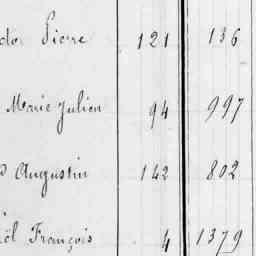 Pierre 121 136
Marie Julien 94 997
Augustin 142 802
François 4 1379